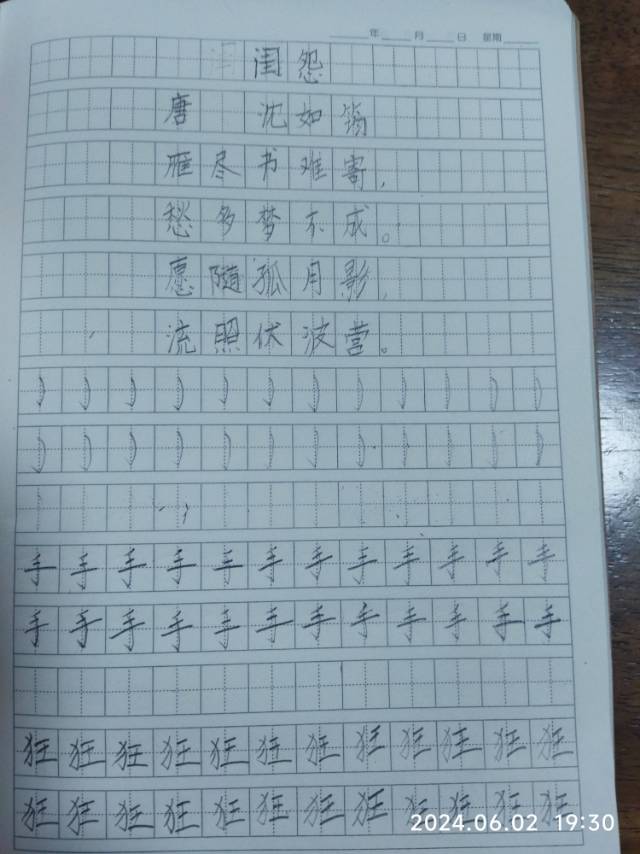 年 月 日 星期
闺怨
唐 沈如筠
雁尽书难寄,
愁多梦不成。
愿随孤月影,
流照伏波营。
手手手手手手手手手手手手
手手手手手手手手手手手手
狂狂狂狂狂狂狂狂狂狂狂狂
狂狂狂狂狂狂狂狂狂狂狂狂
2024.06.02 19:30